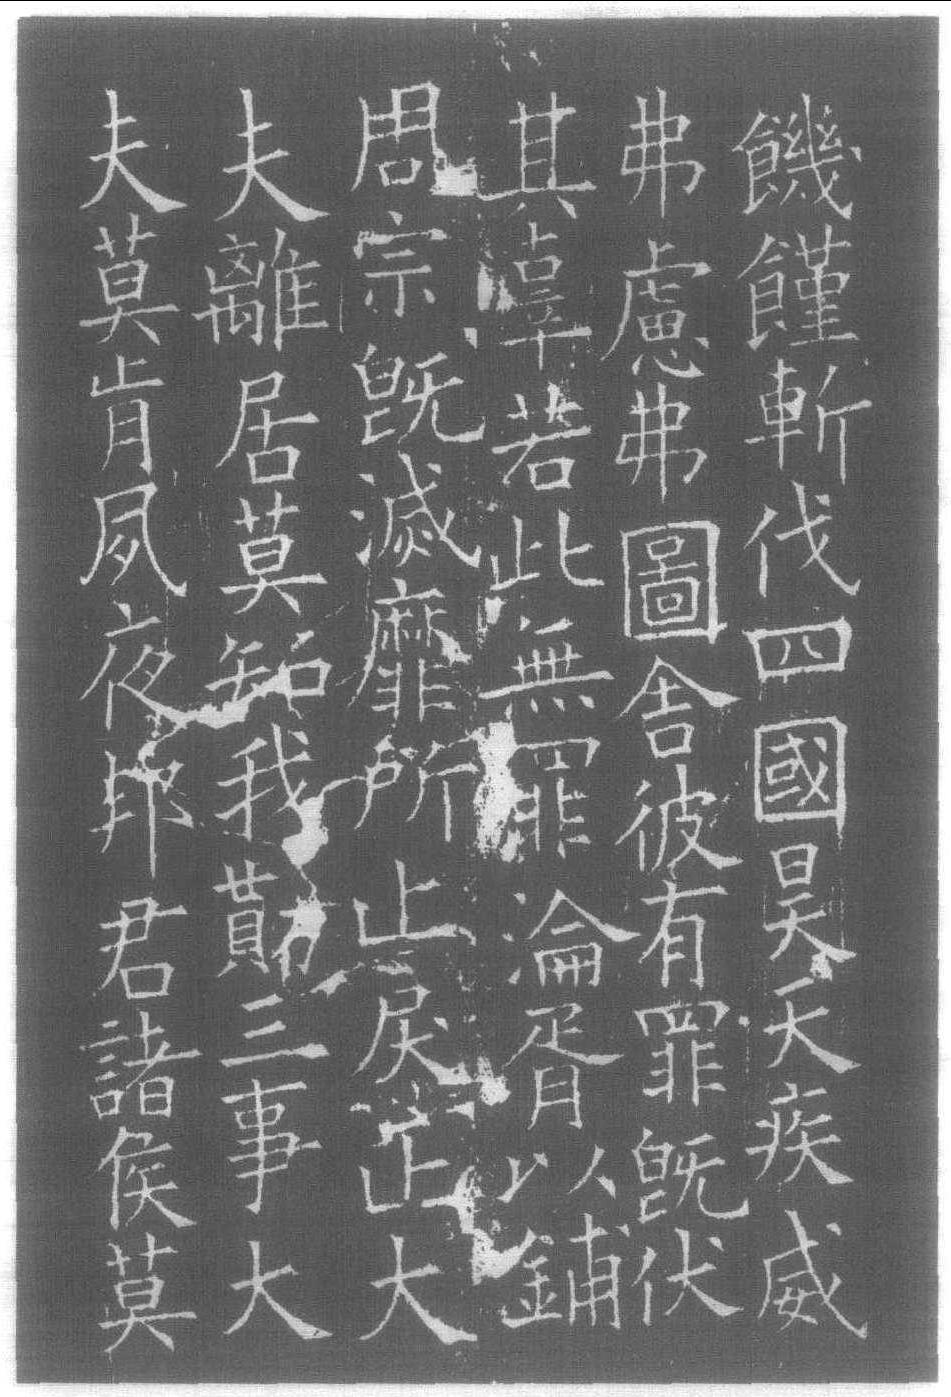 饑饉斬伐四國昊天疾威
弗慮弗圖舍彼有罪既伏
其辜若此無罪淪胥以鋪
周宗既滅靡所止戾正大
夫離居莫知我勩三事大
夫莫肯夙夜邦君諸侯莫